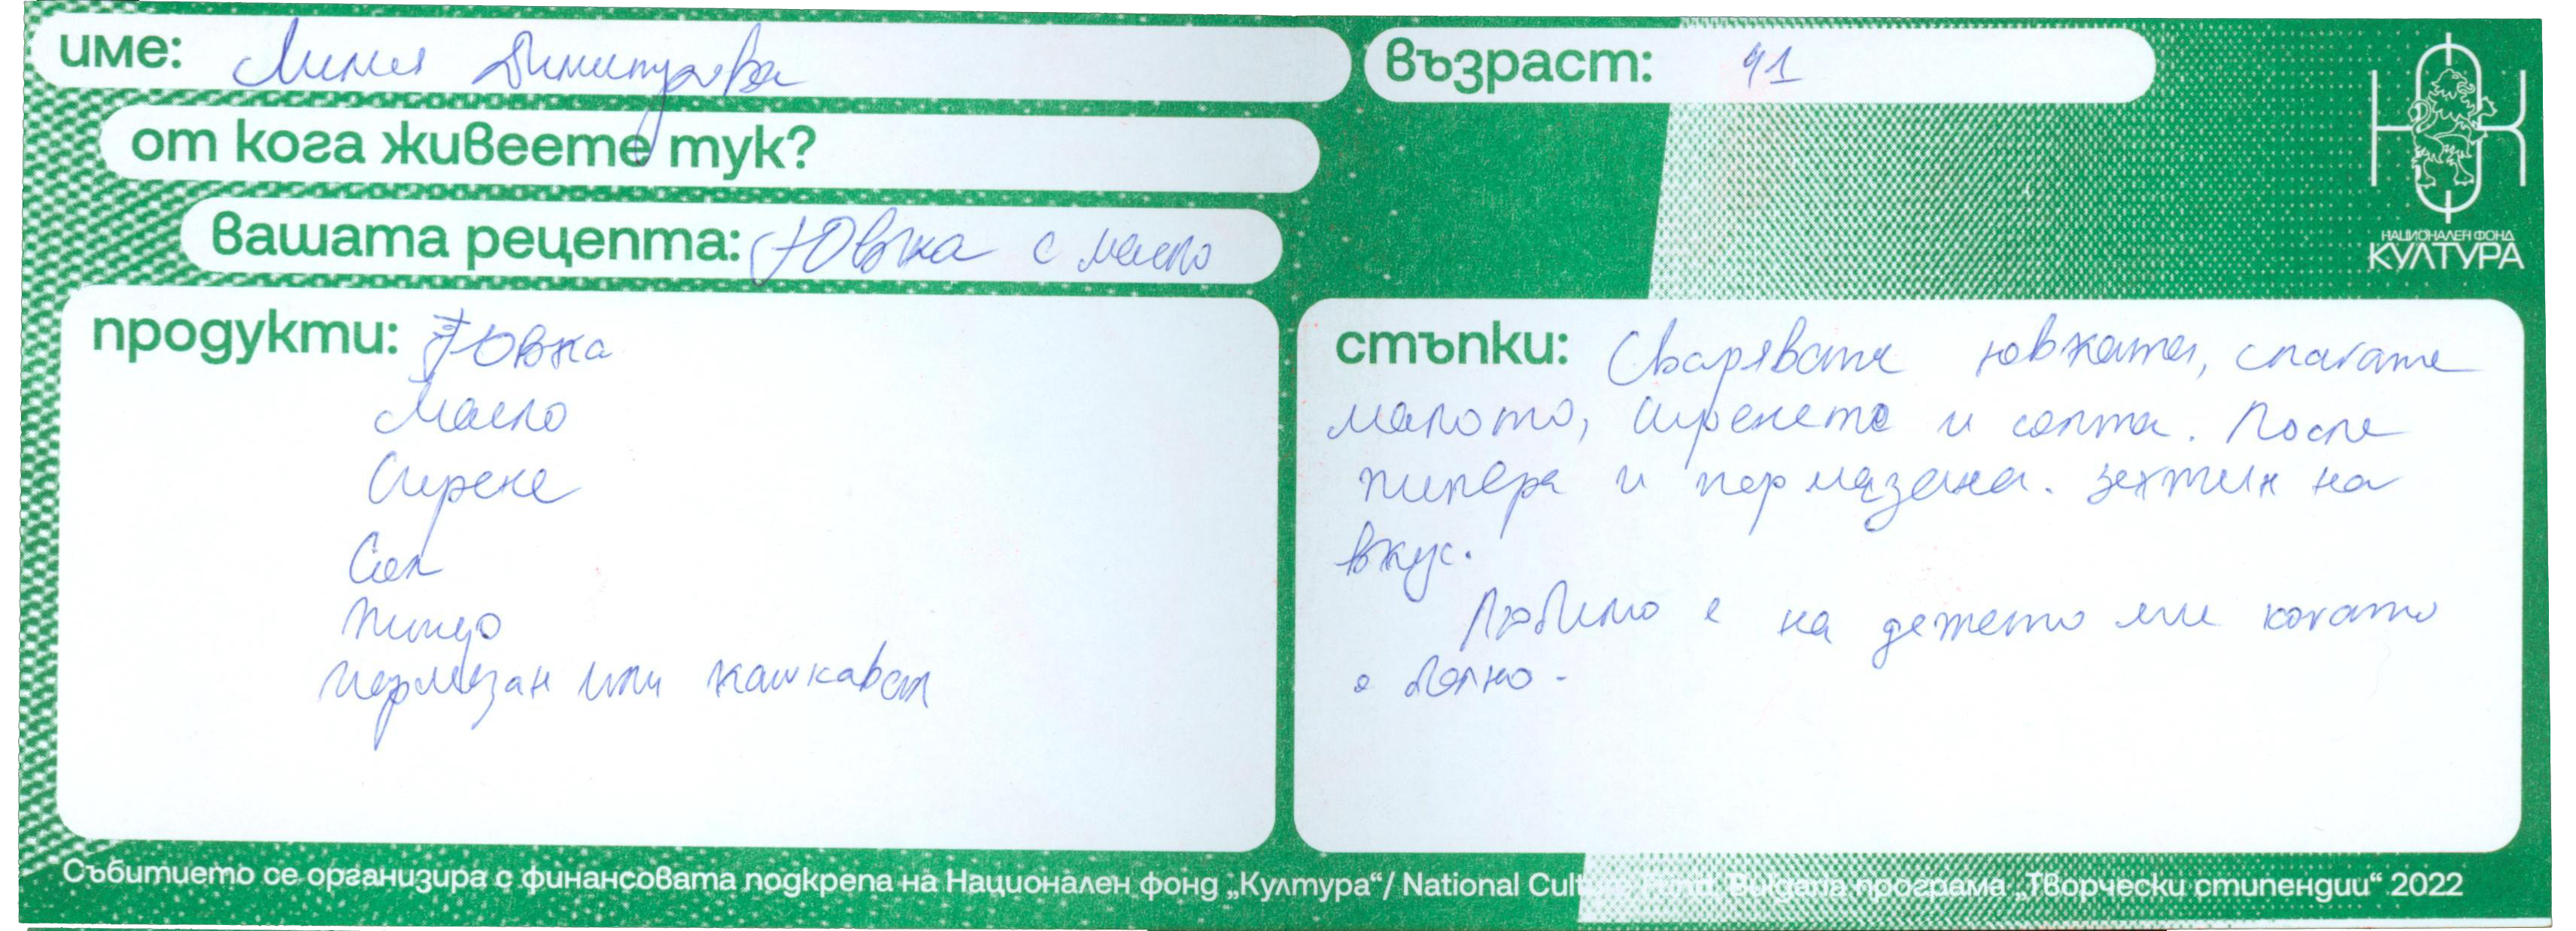 име: Лилия Димитрова
възраст: 41
от кога живеете тук?
вашата рецепта: Ювка с масло
НАЦИОНАЛЕН ФОНД
КУЛТУРА
продукти: Ювка
Масло
Сирене
Сол
Пипер
Пармезан или кашкавал
стъпки: Сварявате ювката, слагате
малото, сиренето и солта. После
пипера и пармазана. Зехтин на
вкус.
Любимо е на детето ми когато
е болно.
Събитието се организира с финансовата подкрепа на Национален фонд „Култура“/ National Culture Fund, Bulgaria програма „Творчески стипендии“ 2022